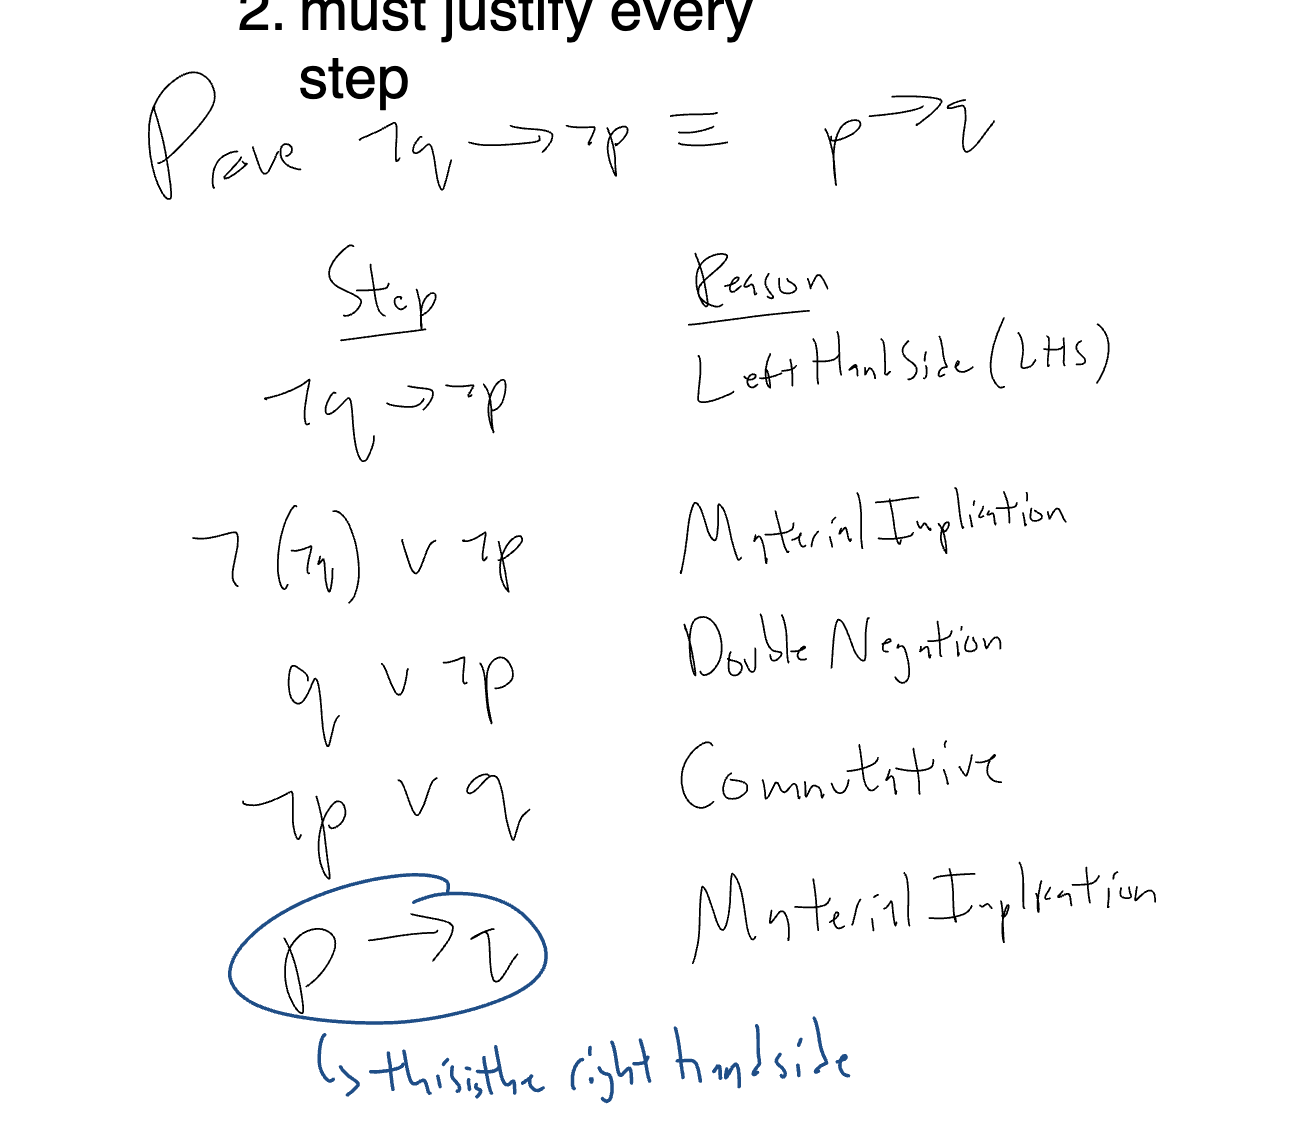 2. must justify every
step
Prove ¬q → ¬p ≡ p → q
Step Reason
¬q → ¬p Left Hand Side (LHS)
¬(¬q) ∨ ¬p Material Implication
q ∨ ¬p Double Negation
¬p ∨ q Commutative
p → q Material Implication
↳ this is the right hand side